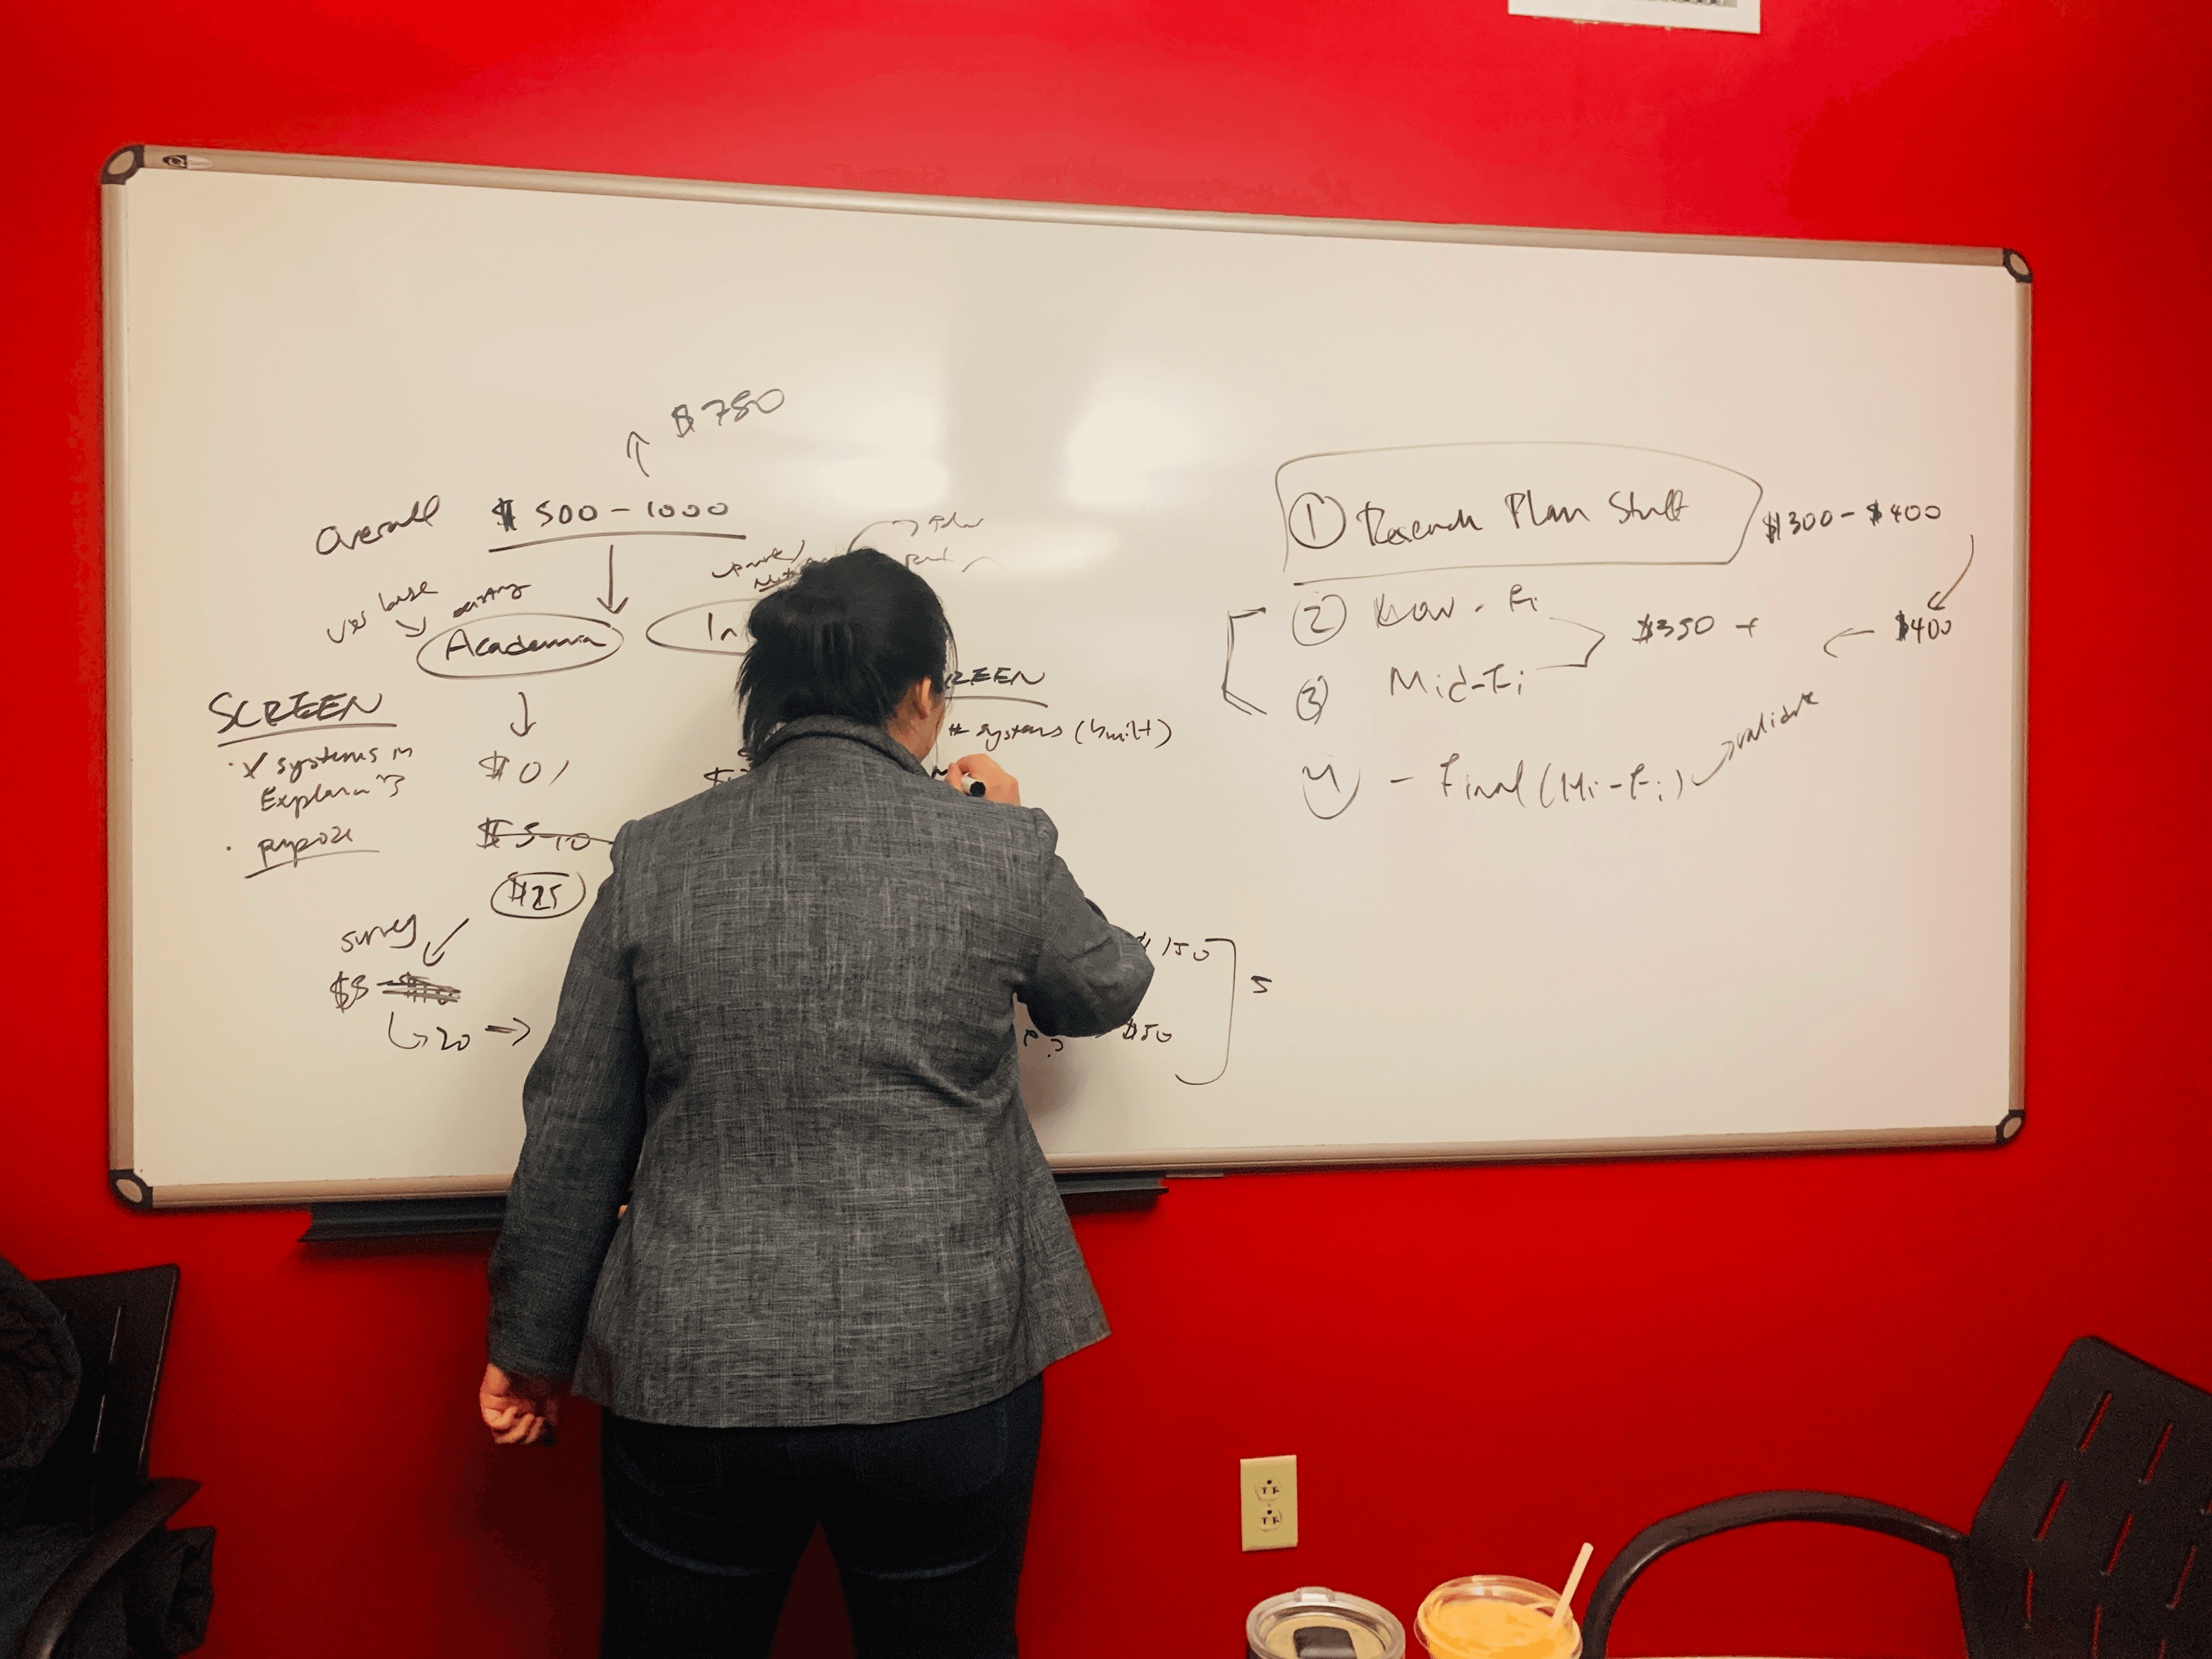 $750
Overall $ 500 - 1000
user base existing
Academia
In
SCREEN
· X systems in
· purpose
$ 0 /
$ 5-10
$25
survey
$8
20
REEN
# systems (built)
$150
$50
?
5
① Research Plan Stuff $300 - $400
② Low - Fi
$350 +
$400
③ Mid-Fi
④ - Final (Hi-Fi) validate